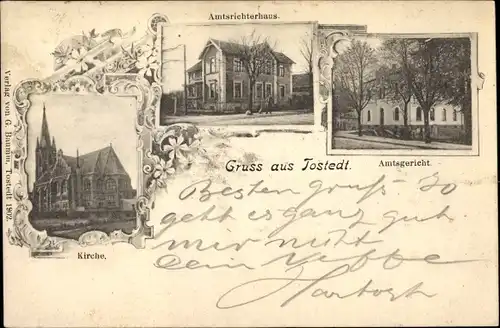 Amtsrichterhaus.
Verlag von G. Bauum, Tostedt 1802.
Gruss aus Tostedt.
Amtsgericht.
Kirche.
Besten Gruß. So
geht es ganz gut
mir nicht
Dein Neffe